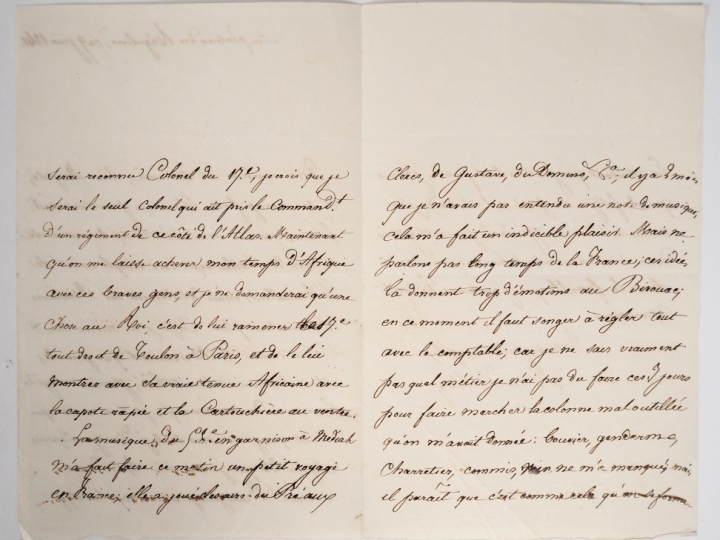 serai reconnu Colonel du 17.e, je crois que je
serai le seul Colonel qui ait pris le Command.t
d'un régiment de ce côté de l'Atlas. Maintenant
qu'on me laisse achever mon temps d'Afrique
avec ces braves gens, et je ne demanderai qu'une
chose au Roi, c'est de lui ramener le 17.e
tout droit de Toulon à Paris, et de le lui
montrer avec sa vraie tenue Africaine avec
la capote rapée et la Cartouchière au ventre.
La musique du en garnison à Médéah
m'a fait faire ce matin un petit voyage
en France; elle a joué des airs du Pré aux
Clercs, de Gustave, du Domino, &a; il y a 2 mois
que je n'avais pas entendu une note de musique,
cela m'a fait un indicible plaisir. Mais ne
parlons pas long temps de la France; ces idées
là donnent trop d'émotions au Bivouac;
en ce moment il faut songer à régler tout
avec le comptable; car je ne sais vraiment
pas quel métier je n'ai pas du faire ces jours
pour faire marcher la colonne mal outillée
qu'on m'avait donnée: bouvier, gendarme,
charretier, commis, rien ne m'a manqué, mais
il paraît que c'est comme cela qu'on se forme